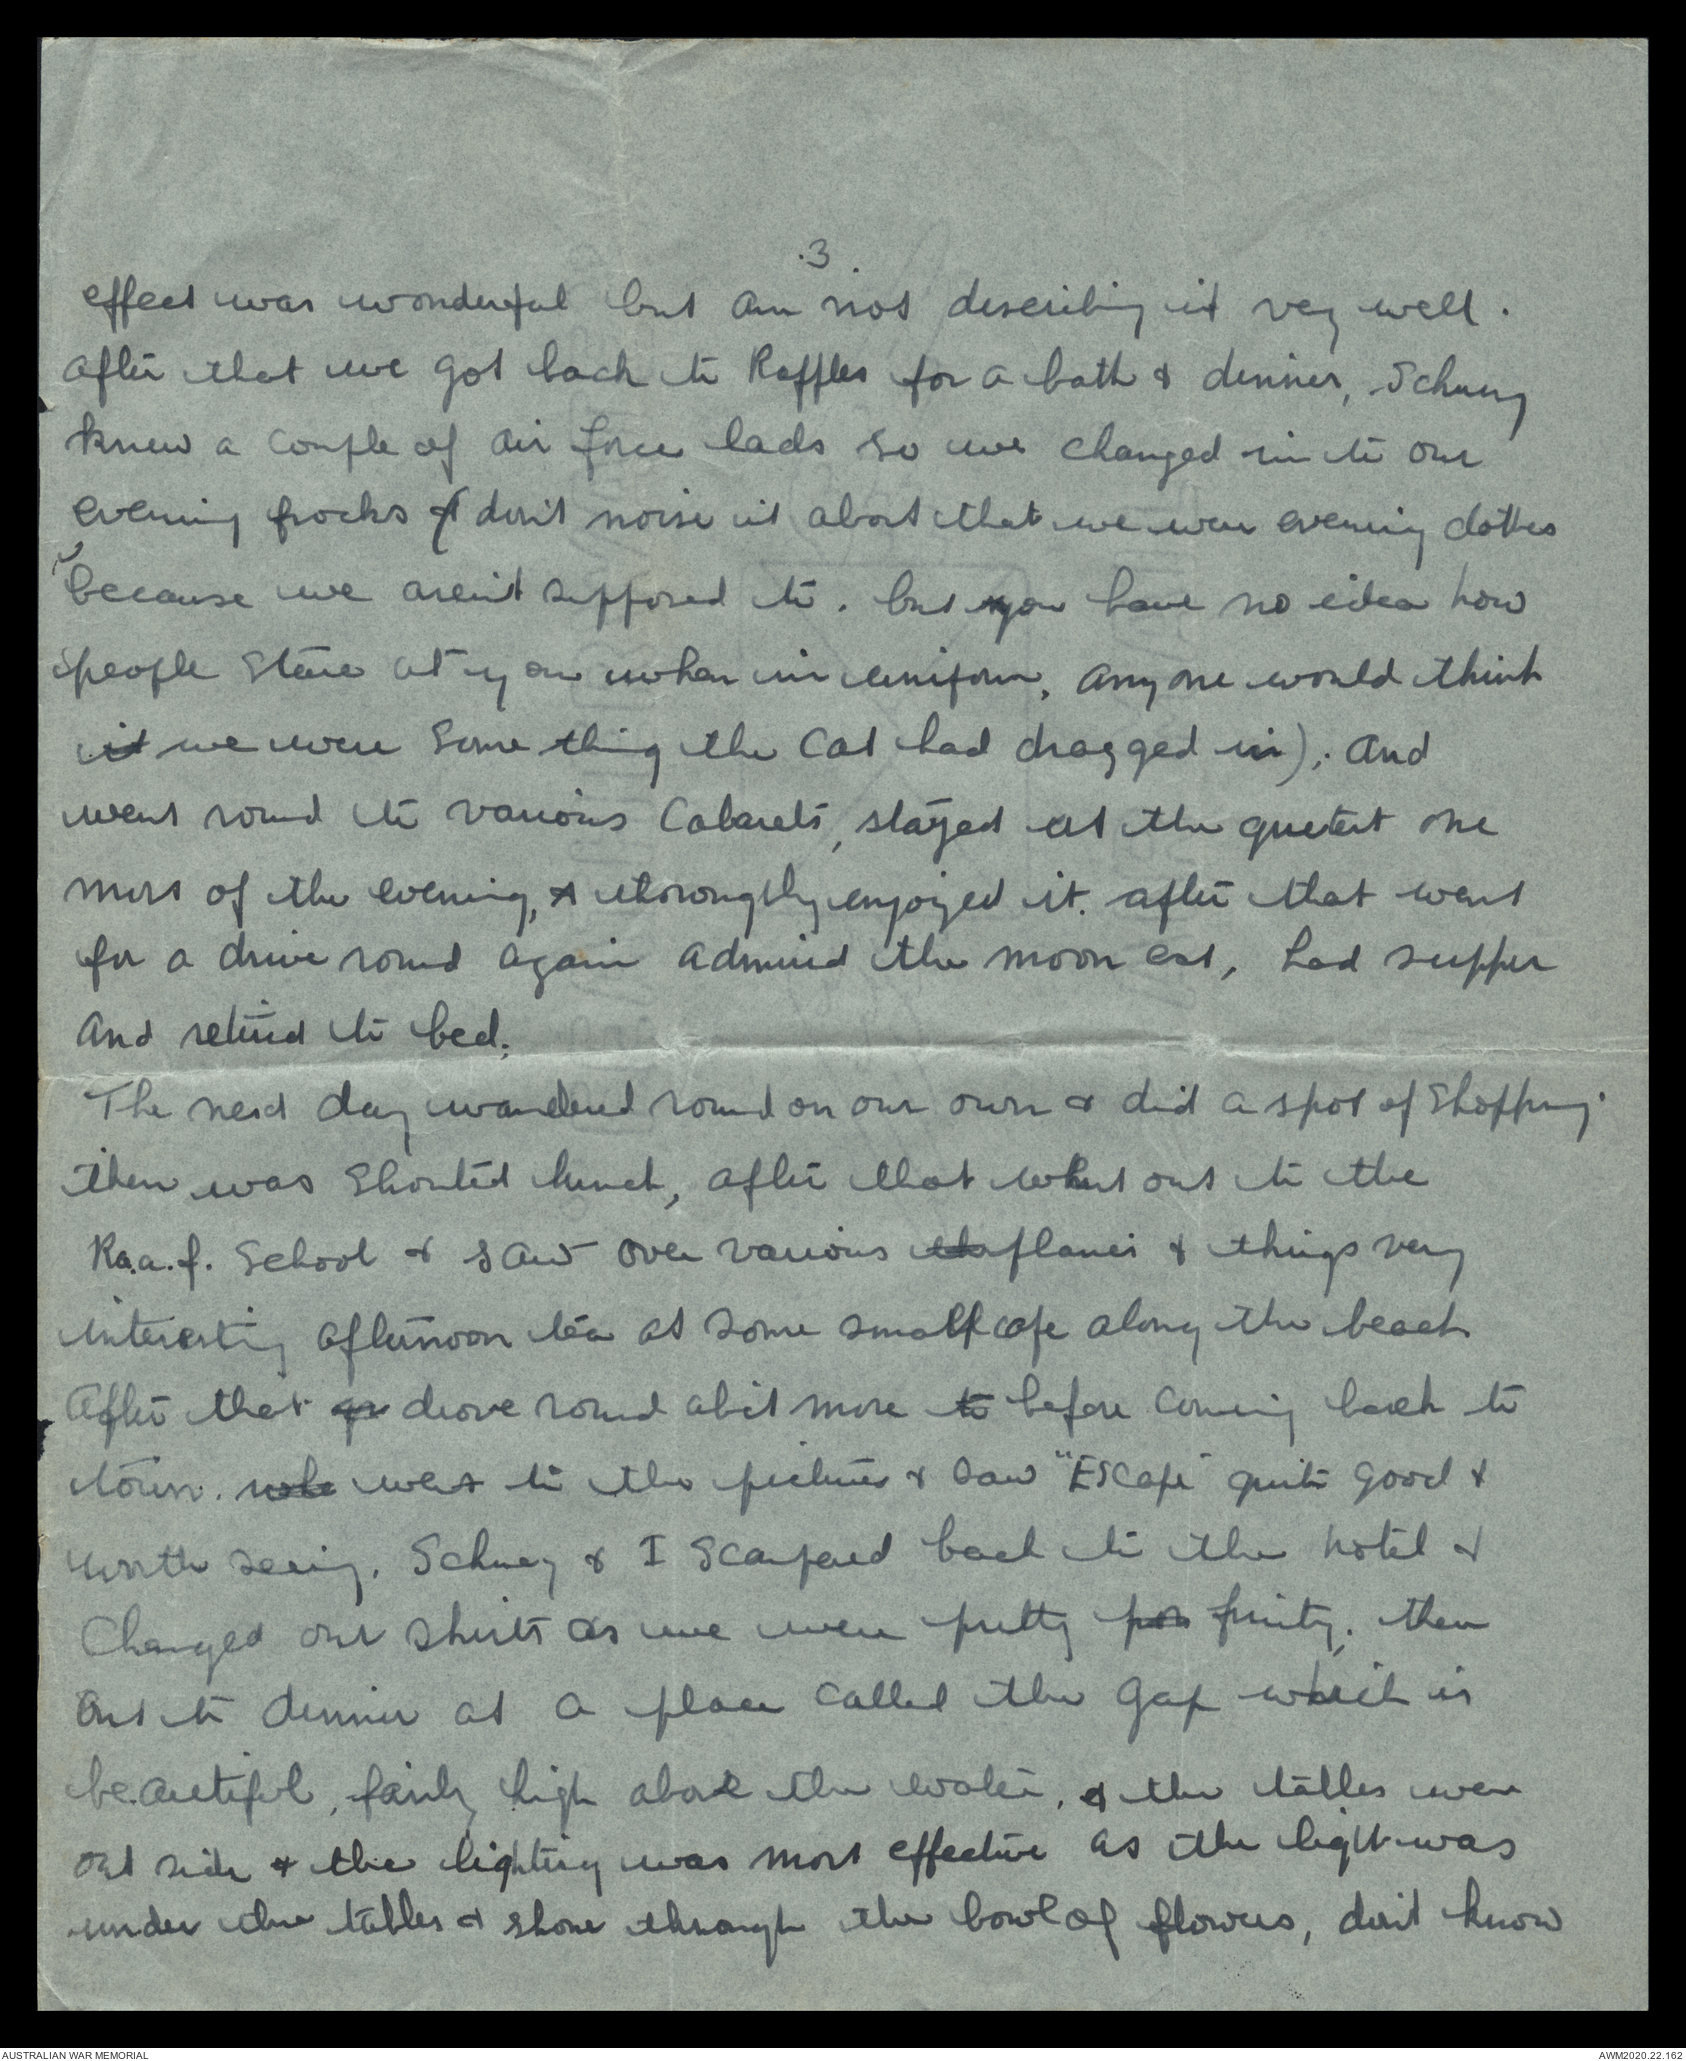 .3.
effect was wonderful but am not describing it very well.
After that we got back to Raffles for a bath & dinner, Schuey
knew a couple of air force lads so we changed in to our
evening frocks & (don't noise it about that we wear evening clothes
because we aren't supposed to. but you have no idea how
people stare at you when in uniform, anyone would think
it we were some thing the cat had dragged in); and
went round to various Cabarets, stayed at the quietest one
most of the evening, & thoroughly enjoyed it. after that went
for a drive round again admired the moon ect, had supper
and retired to bed.
The next day wandered round on our own & did a spot of shopping.
then was shouted lunch, after that went out to the
Ra.a.f. School & saw over various planes & things very
interesting afternoon tea at some small cafe along the beach
After that drove round abit more to before coming back to
town. went to the pictures & saw "Escape" quite good &
worth seeing. Schuey & I scampered back to the hotel &
Changed our shirts as we were pretty fruity, then
out to dinner at a place called the Gap which is
beautiful, fairly high above the water, & the tables were
out side & the lighting was most effective as the light was
under the tables & shone through the bowl of flowers, don't know
AUSTRALIAN WAR MEMORIAL
AWM2020.22.162